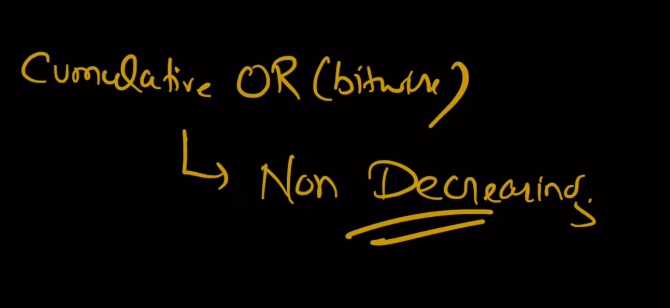 Cumulative OR (bitwise)
↳ Non Decreasing.